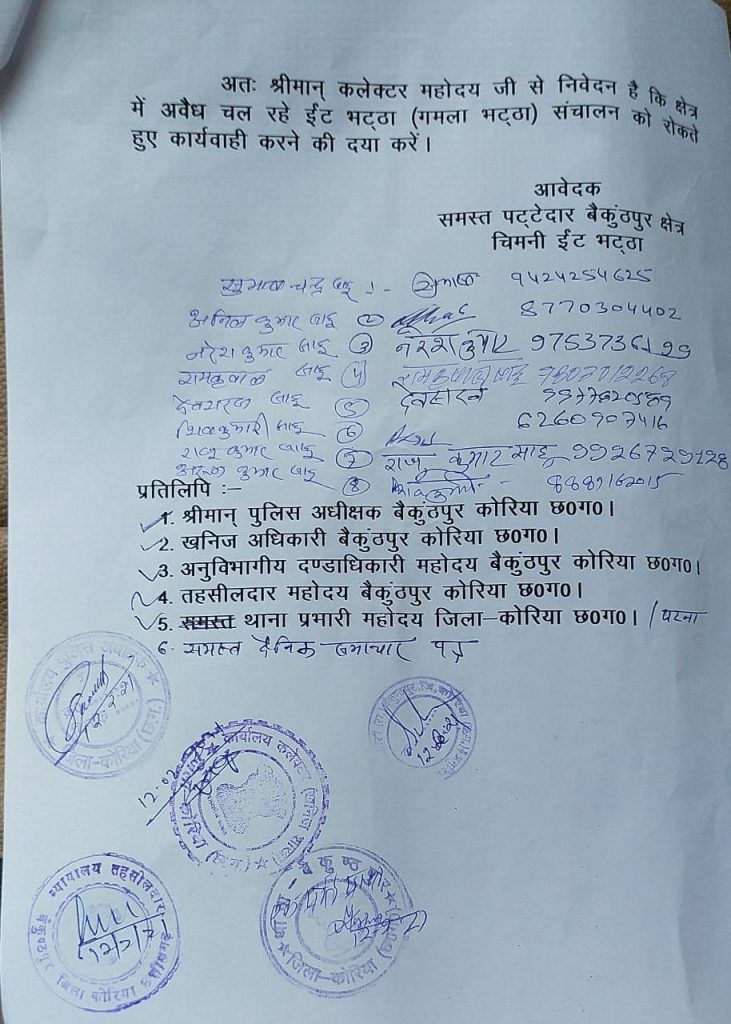 अतः श्रीमान् कलेक्टर महोदय जी से निवेदन है कि क्षेत्र
में अवैध चल रहे ईंट भट्ठा (गमला भट्ठा) संचालन को रोकते
हुए कार्यवाही करने की दया करें।
आवेदक
समस्त पट्टेदार बैकुंठपुर क्षेत्र
चिमनी ईंट भट्ठा
सुभाष चन्द्र साहू 9424254625
अनिल कुमार साहू 2 8770304402
नरेश कुमार साहू 3 नरेश कुमार 9753736199
रामकुवाल साहू 4
देवशरण साहू 5 देवशरन
शिवकुमारी साहू 6 6260907416
राजू कुमार साहू 7 राजू कुमार साहू 9926729128
अरुण कुमार साहू 8
प्रतिलिपि :–
1. श्रीमान् पुलिस अधीक्षक बैकुंठपुर कोरिया छ0ग0।
2. खनिज अधिकारी बैकुंठपुर कोरिया छ0ग0।
3. अनुविभागीय दण्डाधिकारी महोदय बैकुंठपुर कोरिया छ0ग0।
4. तहसीलदार महोदय बैकुंठपुर कोरिया छ0ग0।
5. समस्त थाना प्रभारी महोदय जिला–कोरिया छ0ग0।
6. समस्त दैनिक समाचार पत्र
कार्यालय पुलिस अधीक्षक
जिला-कोरिया (छ.ग.)
12.2.21
कार्यालय कलेक्टर (खनिज शाखा)
कोरिया (छ.ग.)
न्यायालय तहसीलदार
बैकुण्ठपुर जिला कोरिया छत्तीसगढ़
जिला-कोरिया